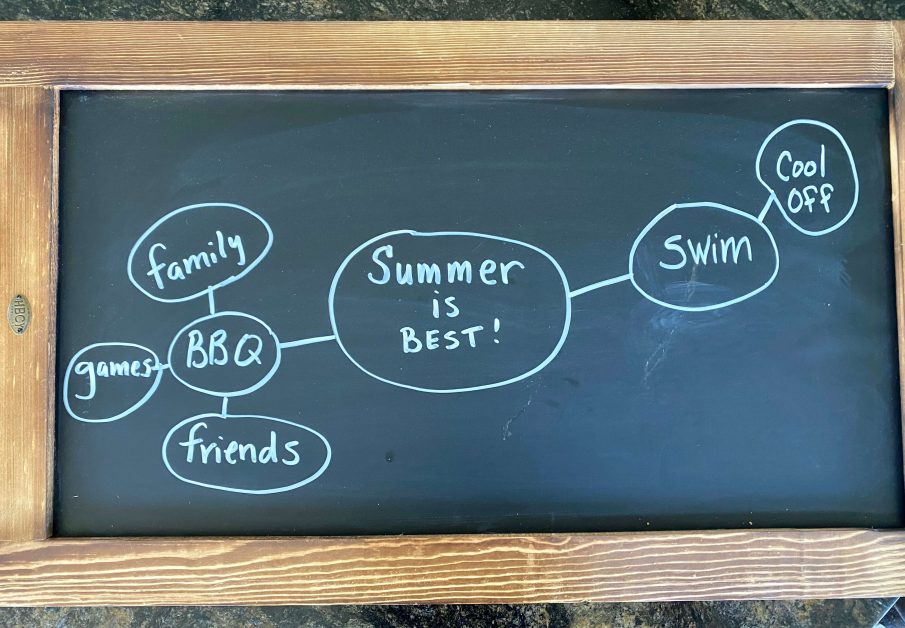 Summer
is
BEST!
BBQ
family
games
friends
Swim
Cool
Off
HBCY